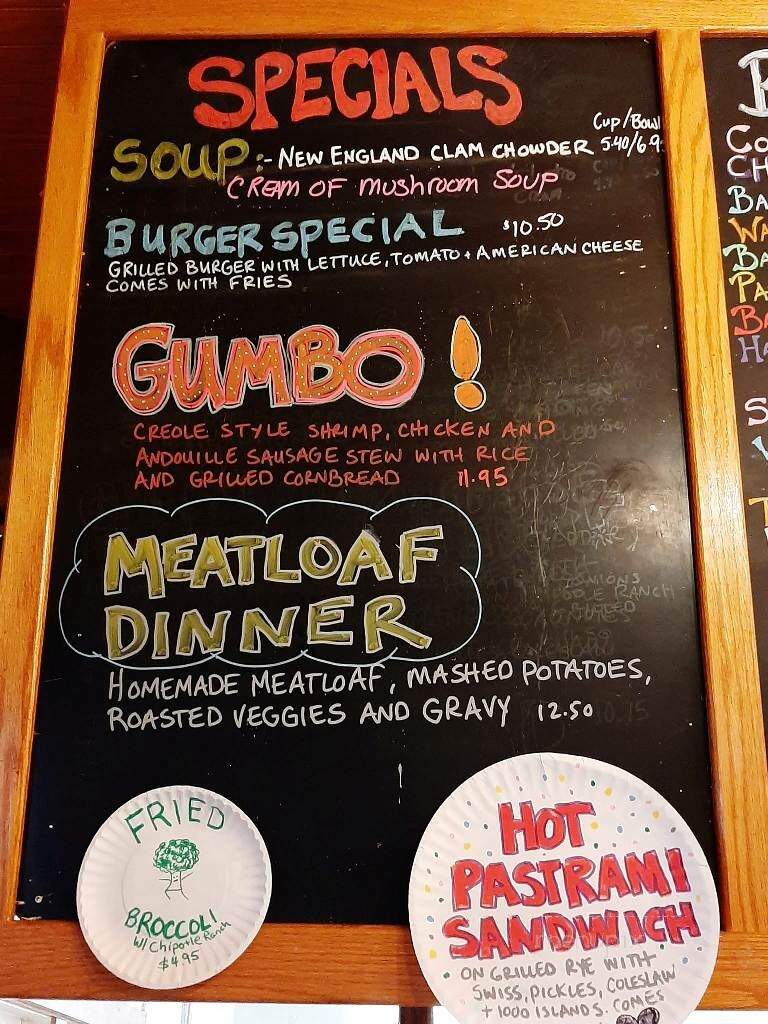 SPECIALS
Cup/Bowl
SOUP:- NEW ENGLAND CLAM CHOWDER 5.40/6.9
CREAM OF MUSHROOM SOUP
BURGER SPECIAL $10.50
GRILLED BURGER WITH LETTUCE, TOMATO + AMERICAN CHEESE
COMES WITH FRIES
GUMBO!
CREOLE STYLE SHRIMP, CHICKEN AND
ANDOUILLE SAUSAGE STEW WITH RICE
AND GRILLED CORNBREAD 11.95
MEATLOAF
DINNER
HOMEMADE MEATLOAF, MASHED POTATOES,
ROASTED VEGGIES AND GRAVY 12.50
FRIED
BROCCOLI
W/ Chipotle Ranch
$4.95
HOT
PASTRAMI
SANDWICH
ON GRILLED RYE WITH
SWISS, PICKLES, COLESLAW
+ 1000 ISLANDS. COMES